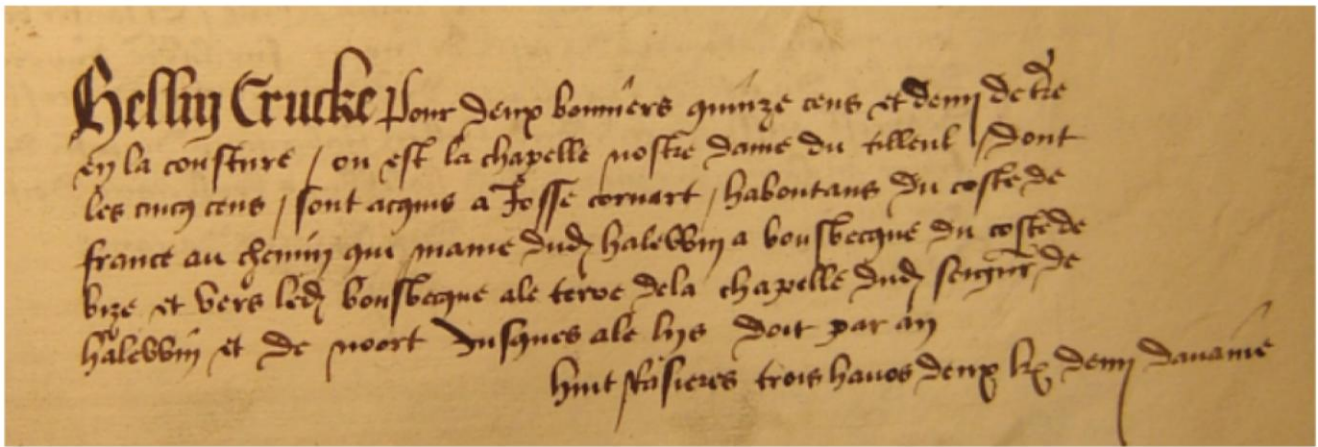 Hellin Crucke pour deux bonniers quinze cens et demi de tre
en la cousture / ou est la chapelle nostre dame du tilleul / dont
les cincq cens / sont acquis a Josse cornart / haboutans du coste de
france au chemin qui maine dud halewin a bousbecque du coste de
bize et vers led bousbecque ale terre dela chapelle dud seignr de
halewin et de noort Jusques ale lys doit par an
huit rasieres trois havos deux demi davaine